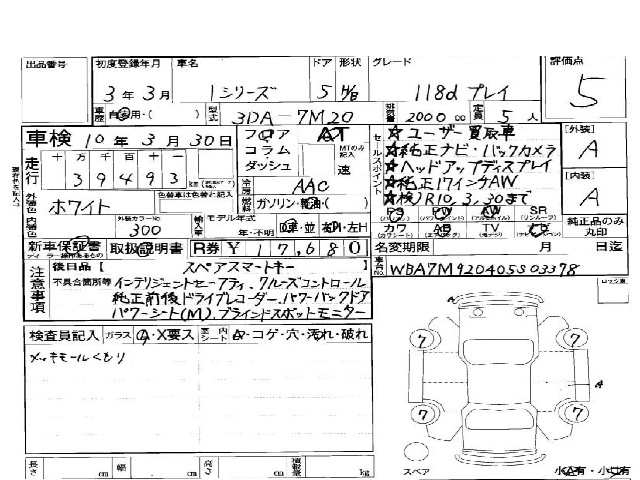 出品番号 初度登録年月 車名 ドア 形状 グレード 評価点
3年3月 1シリーズ 5 H/B 118d プレイ 5
車歴 自家用・( ) 型式 3DA-7M20 排気量 2000 cc 定員 5人
車検 10年3月30日 フロア AT セールスポイント ☆ユーザー買取車 [外装]
走行 十万千百十一 コラム MTのみ記入 ☆純正ナビ・バックカメラ A
39493 km ダッシュ 速 ☆ヘッドアップディスプレイ [内装]
外装色 ホワイト 色替車は元色も記入 冷房 AAC ☆純正17インチAW A
燃料 ガソリン・軽油・( ) ☆検)R10,3,30まで
内装色 外装カラーNo 300 輸入車 モデル年式 年・不明 D車・並 右H・左H
PS PW AW SR 純正品のみ丸印
カワ AB TV ナビ
新車保証書 取扱説明書 R券 ¥17,680 名変期限 月 日迄
ディーラー 車台No. WBA7M920405S03378
注意事項 後日品 スペアスマートキー
不具合箇所等 インテリジェントセーフティ、クルーズコントロール
純正前後ドライブレコーダー、パワーバックドア
パワーシート(M)、ブラインドスポットモニター
検査員記入 ガラス A・X要ス 室内 シート A・コゲ・穴・汚れ・破れ
メッキモールくもり
A
7 7
A
7 7
スペア 小A有・小U有
長さ cm 幅 cm 高さ cm 積載量 kg